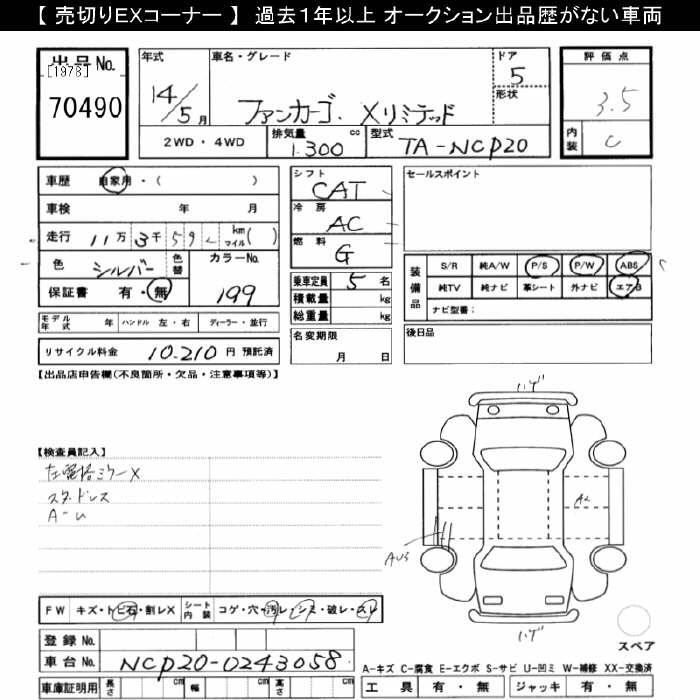 【 売切りEXコーナー 】 過去１年以上 オークション出品歴がない車両
出品No.
[1978]
70490
年式
14/5月
車名・グレード
ファンカーゴ. Xリミテッド
ドア
5
形状
2WD・4WD
排気量 cc
1.300
型式
TA-NCP20
評価点
3.5
内装
C
車歴 自家用・( )
車検 年 月
走行 11万3千59 km マイル( )
色 シルバー 色替
カラーNo.
199
保証書 有・無
シフト
CAT
冷房
AC
燃料
G
乗車定員 5 名
積載量 kg
総重量 kg
セールスポイント
装備品
S/R 純A/W P/S P/W ABS
純TV 純ナビ 革シート 外ナビ エアB
ナビ型番:
モデル年式 年 ハンドル 左・右 ディーラー・並行
リサイクル料金 10.210 円 預託済
名変期限
月 日
後日品
【出品店申告欄(不良箇所・欠品・注意事項等)】
ハゲ
【検査員記入】
左電格ミラーX
スタッドレス
A-U
AU3
ハゲ
FW キズ・トビ石・割レX
シート内装 コゲ・穴・汚レ・シミ・破レ・スレ
登録No.
車台No. NCP20-0243058
車庫証明用 長さ cm 幅 cm 高さ cm
スペア
A-キズ C-腐食 E-エクボ S-サビ U-凹ミ W-補修 XX-交換済
工具 有・無 ジャッキ 有・無